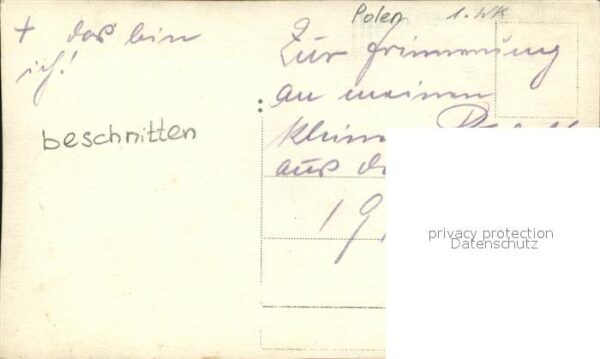 Polen 1. WK
+ das bin
ich!
beschnitten
Zur Erinnerung
an meinen
kleinen
aus
19
privacy protection
Datenschutz